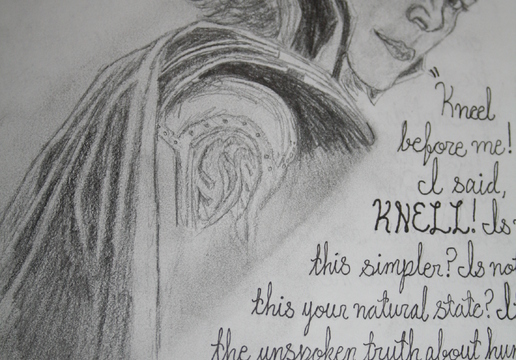 "Kneel
before me!
I said,
KNELL! Is
this simpler? Is not
this your natural state? It
the unspoken truth about hum